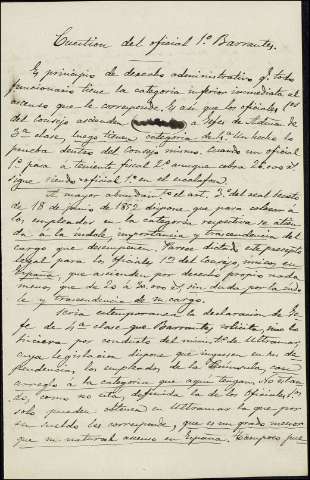 Cuestion del oficial 1.º Barrantes.
Es principio de derecho administrativo q.e todo
funcionario tiene la categoria inferior inmediata al
ascenso que le corresponde. Es asi que los oficiales 1.os
del Consejo ascienden á Jefes de Admon de
3.ª clase, luego tienen categoria de 4.ª Un hecho lo
prueba dentro del Consejo mismo. Cuando un oficial
1.º pasa á teniente fiscal 2.º aunque cobra 26.000 r.s
sigue siendo oficial 1.º en el escalafon.
A mayor abundam.to el art. 3.º del real decreto
de 18 de junio de 1852 dispone que para colocar á
los empleados en la categoria respectiva se atien-
da á la indole, importancia y trascendencia del
cargo que desempeñen. Parece dictado este precepto
legal para los oficiales 1.os del Consejo, unicos en
España, que ascienden por derecho propio nada
menos que de 20 á 30.000 r.s, sin duda por la indo-
le y trascendencia de su cargo.
Seria extemporanea la declaracion de Je-
fe de 4.ª clase que Barrantes solicita, si no la
hiciera por conducto del minist.º de Ultramar,
cuya legislacion dispone que ingresen en sus de-
pendencias, los empleados de la Península, con
arreglo á la categoria que aqui tengan. No estan-
do, como no esta, definida la de los oficiales 1.os
solo pueden obtener en Ultramar la que por
su sueldo les corresponde, que es un grado menor
que su natural ascenso en España. Tampoco pue-